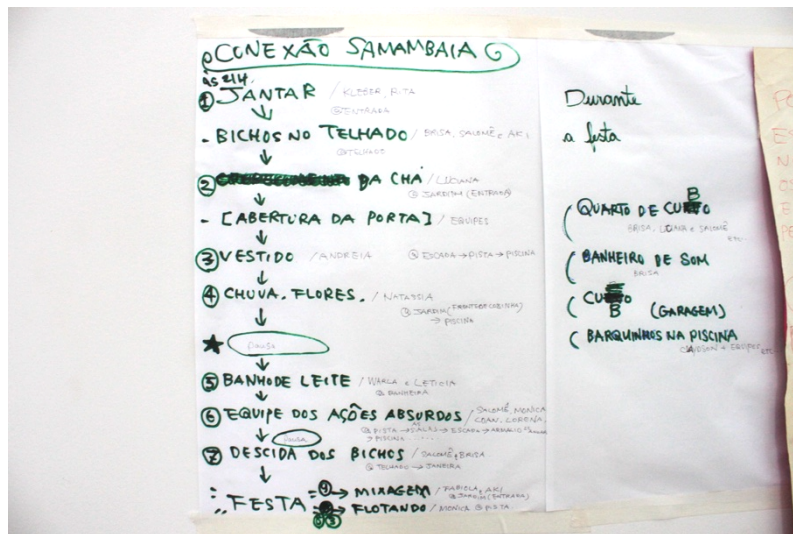 CONEXÃO SAMAMBAIA
às 21H.
① JANTAR / KLEBER, RITA
@ ENTRADA
- BICHOS NO TELHADO / BRISA, SALOMÊ e AKI
@ TELHADO
② DA CHÁ / LUCIANA
@ JARDIM (ENTRADA)
- [ABERTURA DA PORTA] / EQUIPES
③ VESTIDO / ANDREIA @ ESCADA → PISTA → PISCINA
④ CHUVA. FLORES. / NATASSIA
@ JARDIM
→ PISCINA
★ pausa
⑤ BANHO DE LEITE / WARLA e LETICIA
@ BANHEIRA
⑥ EQUIPE DOS AÇÕES ABSURDOS / SALOMÊ, MONICA
LORENA,
@ PISTA → → ESCADA →
→ PISCINA
pausa
⑦ DESCIDA DOS BICHOS / SALOMÊ e BRISA
@ TELHADO → JANEIRA
FESTA → MIXAGEM / FABIOLA, AKI
@ JARDIM (ENTRADA)
→ FLOTANDO / MONICA @ PISTA
Durante
a festa
( QUARTO DE CUBO
BRISA, LUANA e SALOMÊ
etc.
( BANHEIRO DE SOM
BRISA
( CUBO (GARAGEM)
( BARQUINHOS NA PISCINA
+ EQUIPES etc